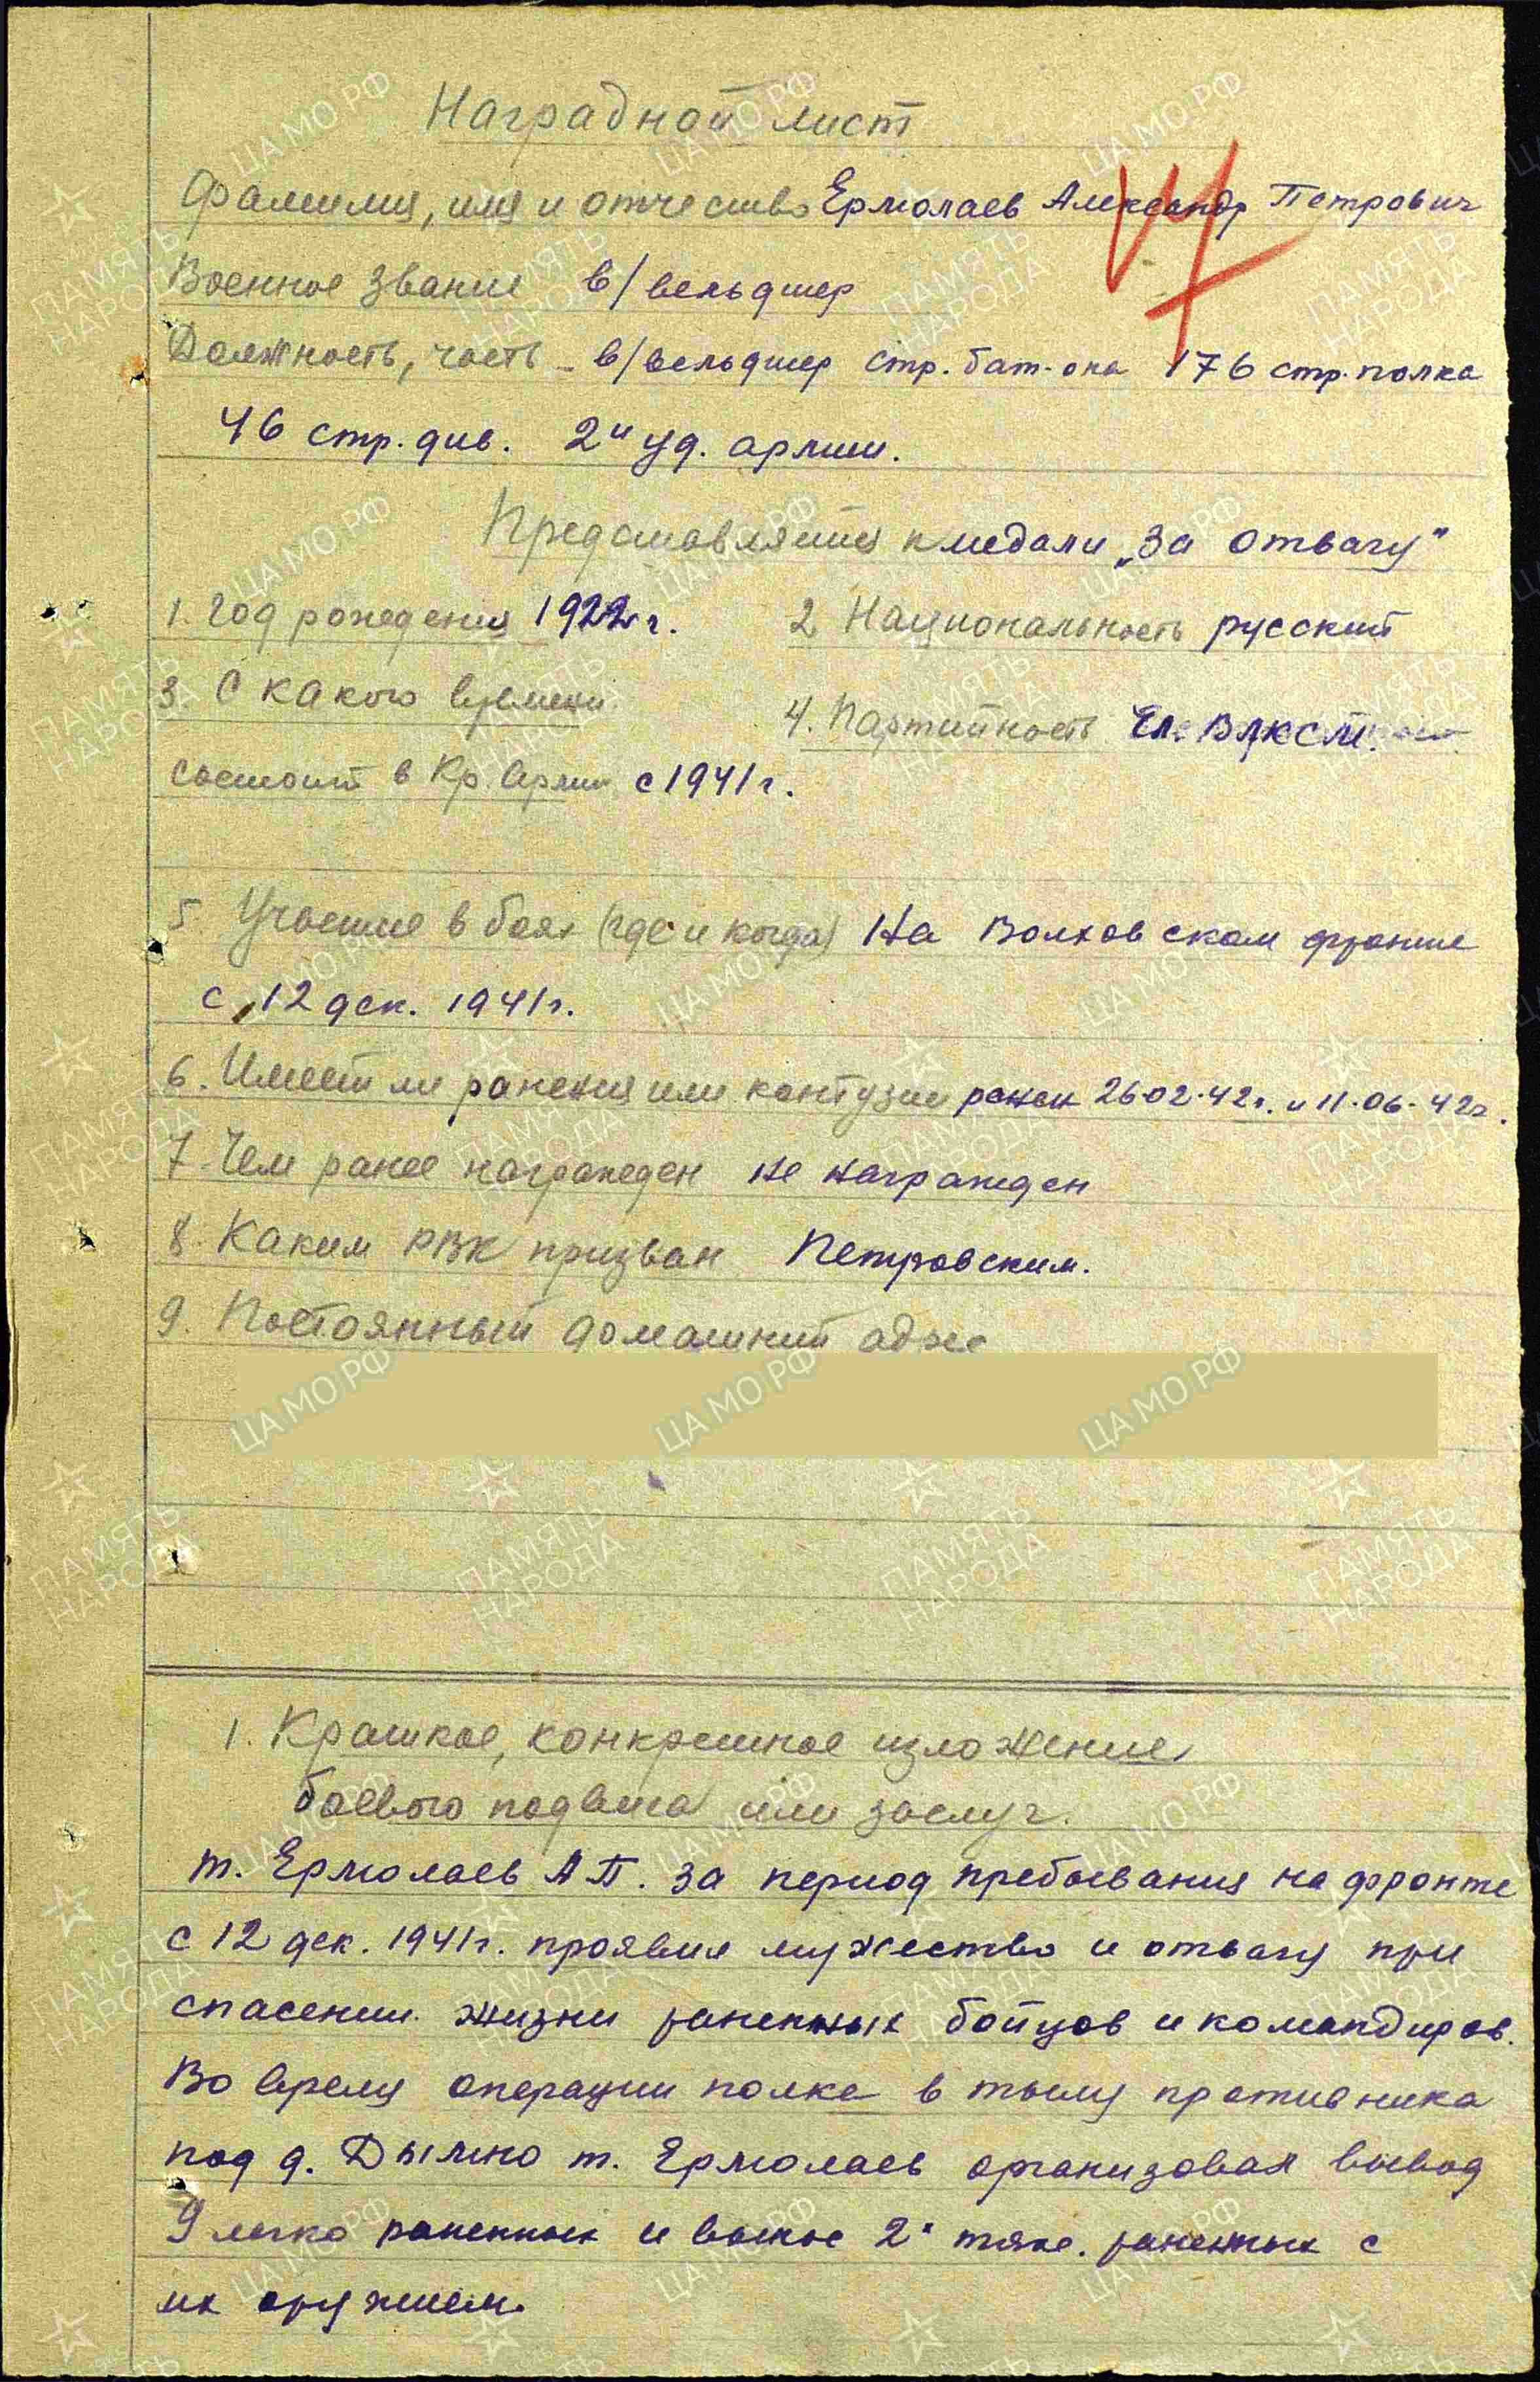 Наградной лист
Фамилия, имя и отчество Ермолаев Александр Петрович
Военное звание в/вельдшер
Должность, часть - в/вельдшер стр. бат-она 176 стр. полка
46 стр. див. 2й уд. армии.
Представляется к медали „За отвагу"
1. Год рождения 1922 г. 2 Национальность русский
3. С какого времени
4. Партийность Член ВЛКСМ.
состоит в Кр. Армии с 1941 г.
5 Участие в боях (где и когда) На Волховском фронте
с 12 дек. 1941 г.
6. Имеет ли ранения или контузии ранен 26.02.42г. и 11.06.42г.
7. Чем ранее награжден не награжден
8. Каким РВК призван Петровским.
9. Постоянный домашний адрес
1. Краткое, конкретное изложение
боевого подвига или заслуг.
т. Ермолаев А П. за период пребывания на фронте
с 12 дек. 1941 г. проявил мужество и отвагу при
спасении жизни раненных бойцов и командиров.
Во время операции полка в тылу противника
под д. Дымно т. Ермолаев организовал вывод
9 легко раненных и вынос 2х тяж. раненных с
их оружием.
ЦА МО РФ
ПАМЯТЬ НАРОДА